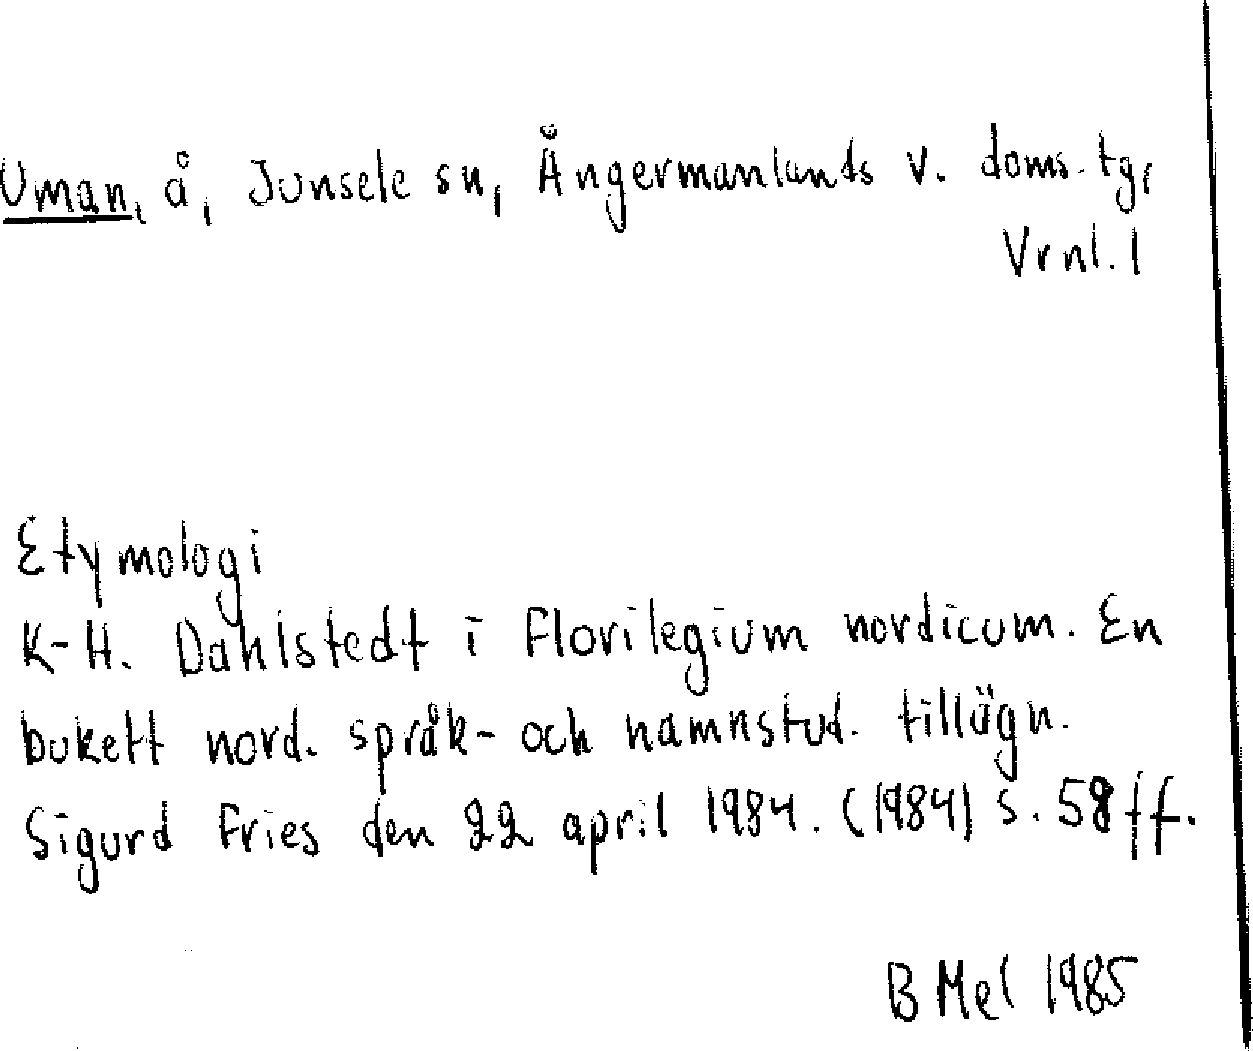 Uman, å, Junsele sn, Ångermanlands v. doms.tg,
Vrnl. l
Etymologi
K-H. Dahlstedt i Florilegium nordicum. En
bukett nord. språk- och namnstud. tillägn.
Sigurd Fries den 22 april 1984. (1984) s. 58 ff.
B Mel 1985